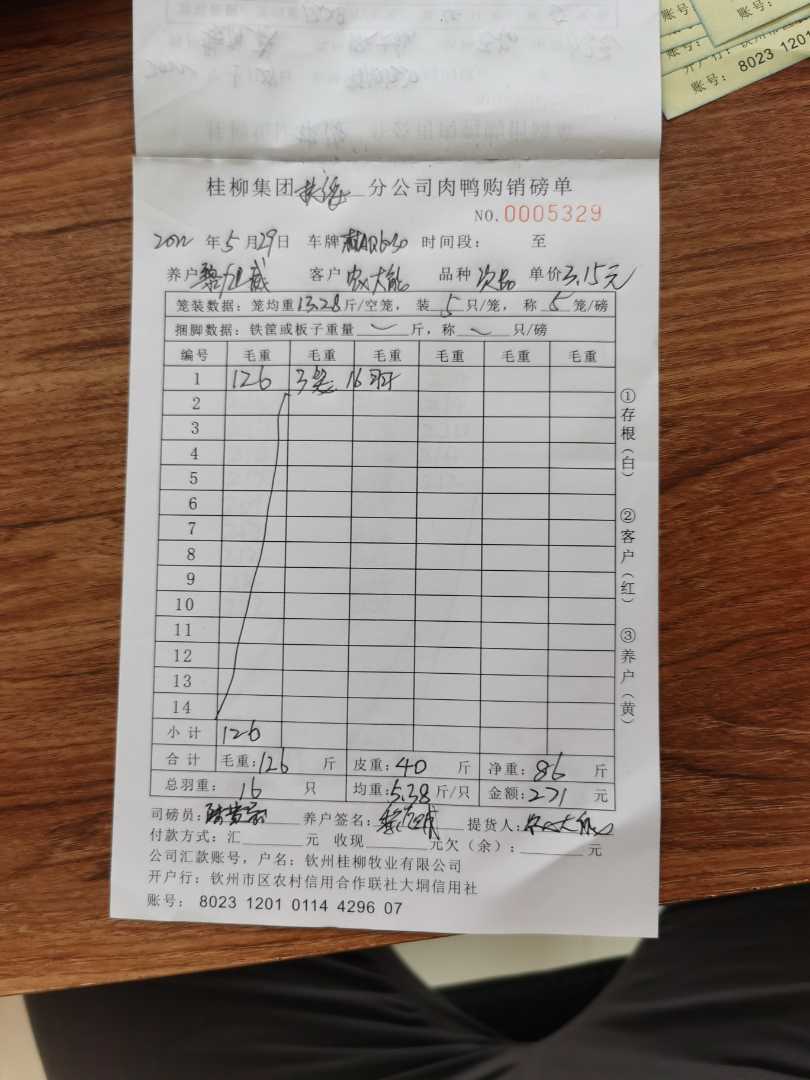 账号：
账号：
账号：
开户行：钦州市
账号： 8023 1201
桂柳集团 分公司肉鸭购销磅单
NO.0005329
2022 年 5 月 29 日 车牌 时间段： 至
养户 黎 威 客户 农大能 品种 次品 单价 3.15元
笼装数据：笼均重 13.28 斤/空笼， 装 5 只/笼， 称 5 笼/磅
捆脚数据：铁筐或板子重量 斤，称 只/磅
编号 毛重 毛重 毛重 毛重 毛重 毛重
1 126 3笼 16羽
2
3
4
5
6
7
8
9
10
11
12
13
14
小计 126
合计 毛重：126 斤 皮重：40 斤 净重：86 斤
总羽重： 16 只 均重：5.38 斤/只 金额：271 元
司磅员： 养户签名： 提货人：农大能
付款方式：汇 元 收现 元欠（余）： 元
公司汇款账号，户名：钦州桂柳牧业有限公司
开户行：钦州市区农村信用合作联社大垌信用社
账号： 8023 1201 0114 4296 07
①存根（白） ②客户（红） ③养户（黄）